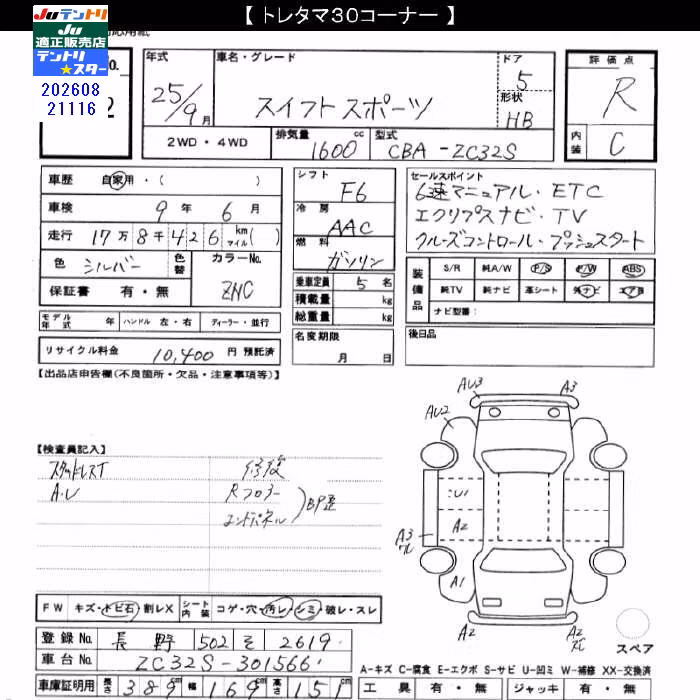 【 トレタマ30コーナー 】
Juテントリ
Ju
適正販売店
テントリ
★スター
202608
21116
応用紙
No.
2
年式
25/9月
車名・グレード
スイフトスポーツ
ドア
5
形状
HB
評価点
R
内装
C
2WD・4WD
排気量
1600
cc
型式
CBA-ZC32S
車歴 自家用・( )
車検 9年 6月
走行 17万8千426 km マイル( )
色 シルバー 色替 カラーNo. ZNC
保証書 有・無
シフト
F6
冷房
AAC
燃料
ガソリン
乗車定員 5名
積載量 kg
総重量 kg
セールスポイント
6速マニュアル・ETC
エクリプスナビ・TV
クルーズコントロール・プッシュスタート
装備品
S/R 純A/W P/S P/W ABS
純TV 純ナビ 革シート 外ナビ エアB
ナビ型番:
モデル年式 年 ハンドル 左・右 ディーラー・並行
名変期限
月 日
後日品
リサイクル料金 10,400 円 預託済
【出品店申告欄(不良箇所・欠品・注意事項等)】
【検査員記入】
スタットレスT
A.U
修復
Rフロアー
エンドパネル
BP歪
AU3
A3
AU2
U1
A2
A3
A1
A2
A2
スペア
FW キズ・トビ石・割レX
シート内装 コゲ・穴・汚レ・シミ・破レ・スレ
登録No. 長野 502 そ 2619
車台No. ZC32S-301566
車庫証明用 長さ 389cm 幅 169cm 高さ 151cm
A-キズ C-腐食 E-エクボ S-サビ U-凹ミ W-補修 XX-交換済
工具 有・無 ジャッキ 有・無